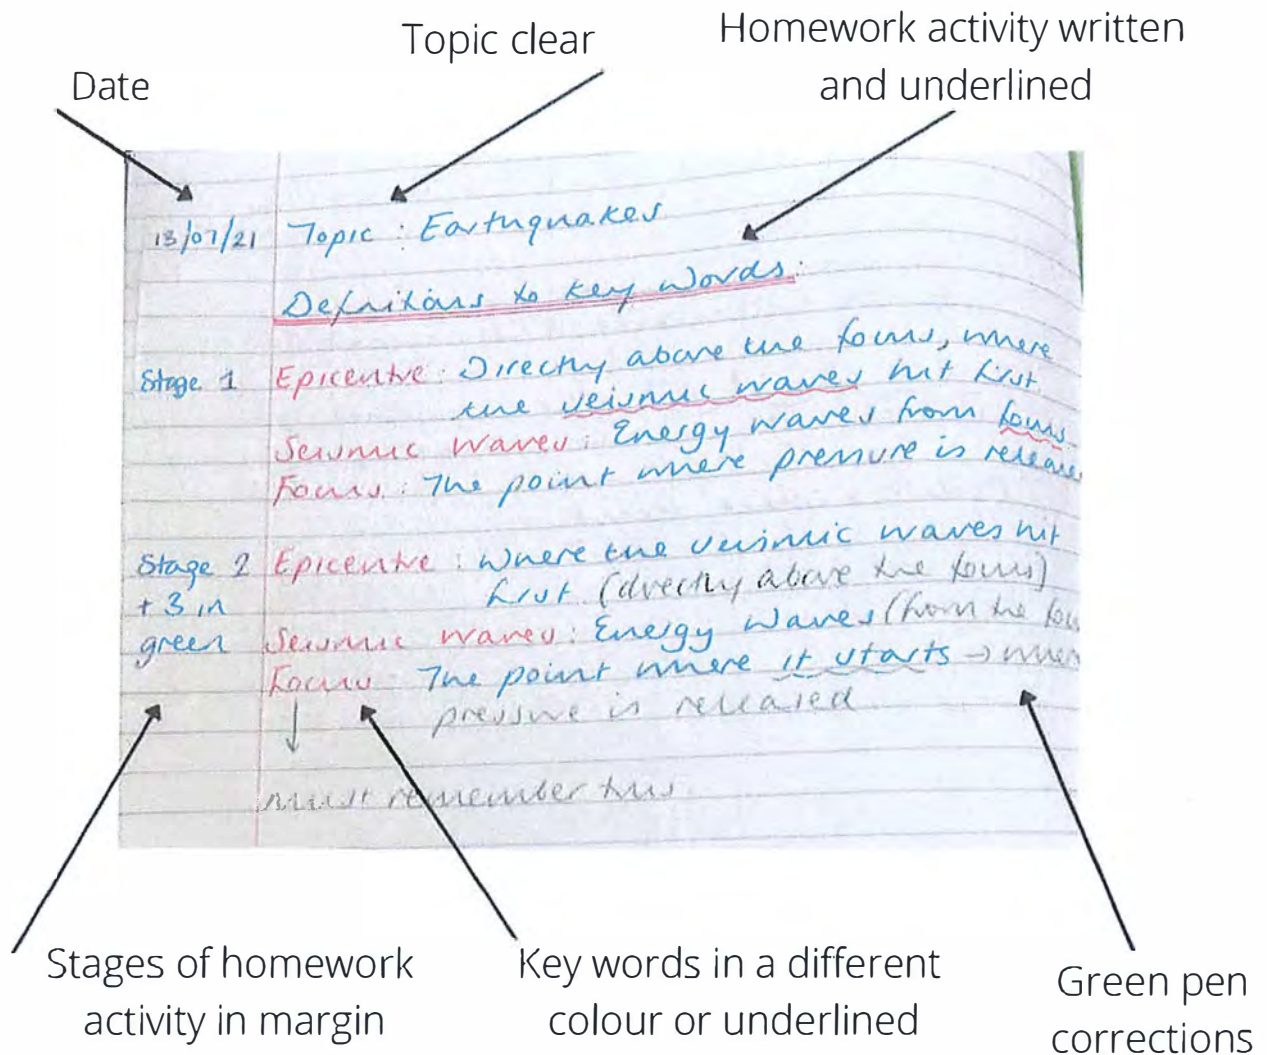 Topic clear
Homework activity written
and underlined
Date
13/07/21 Topic : Earthquakes
Definitions to key words:
Stage 1 Epicentre : Directly above the focus, where
the seismic waves hit first.
Seismic waves : Energy waves from focus
Focus : The point where pressure is release
Stage 2 Epicentre : Where the seismic waves hit
+ 3 in first (directly above the focus)
green Seismic waves : Energy waves (from the
Focus : The point where it starts →
pressure is released
must remember this
Stages of homework
activity in margin
Key words in a different
colour or underlined
Green pen
corrections